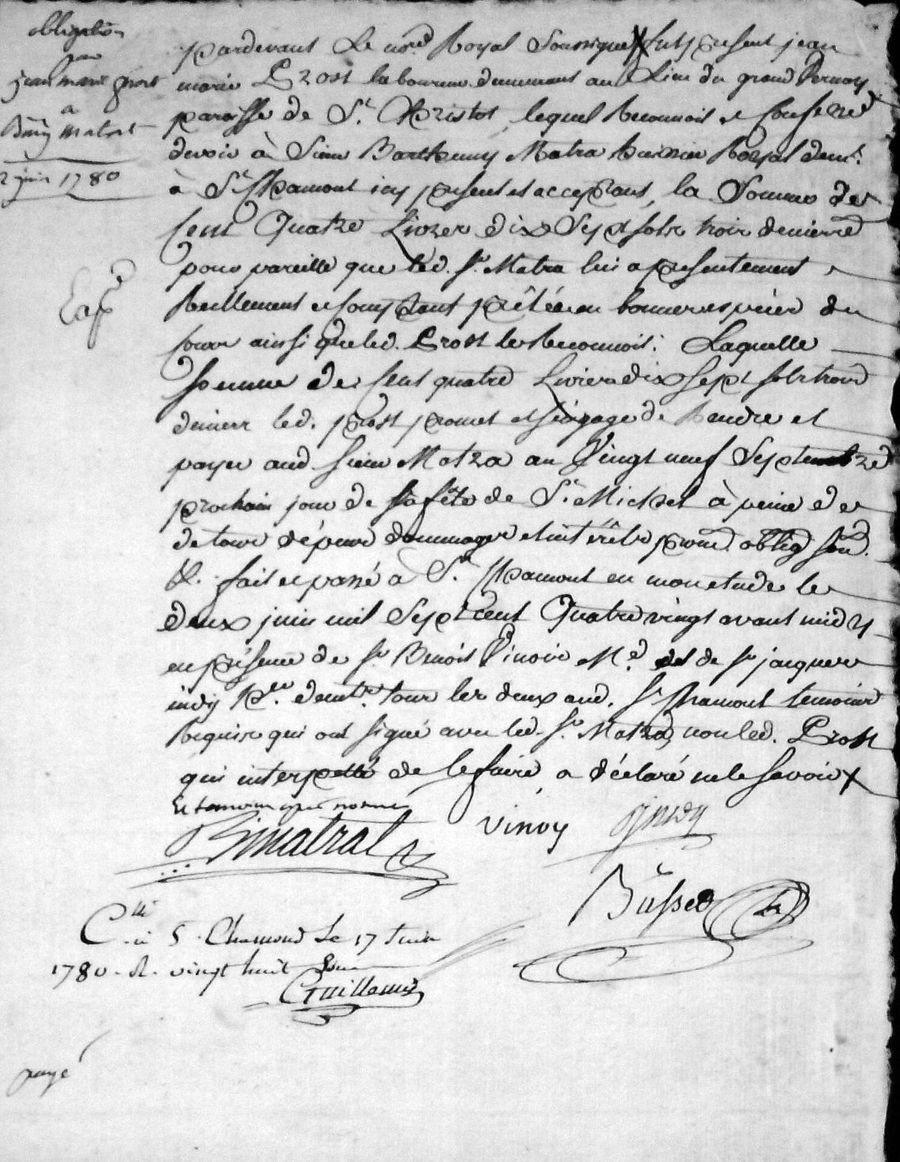 obligation
par
jean marie prost
à
Bmy matrat
2 juin 1780
Exp.é
pardevant Le no.re Royal Soussigné fut present jean
marie Prost laboureur demeurant au Lieu du grand
paroisse de St. Christot, lequel Reconnoit et Confesse
devoir à Sieur Barthemy Matra huissier Royal demt.
à St. Chamont icy present et acceptant, la Somme de
Cent Quatre Livres dix Sept sols trois deniers
pour pareille que led. Sr. Matra lui a presentement
Reellement et Comptant prêtée en bonnes espèces du
Cours ainsi que led. Prost le Reconnoit. Laquelle
Somme de Cent quatre Livres dix Sept sols trois
deniers led. prost promet et s'engage de Rendre et
payer aud. Sieur Matra au Vingt neuf Septembre
prochain jour de la fête de St. Michel à peine de
de tous dépens dommages et intérêts prom. oblig.
&. fait et passé à St. Chamont en mon etude le
deux juin mil Sept Cent Quatre vingt avant midy
en présence de Sr. Benoit Vinoy M.d et de Sr. jacques
demt. tous les deux aud. St. Chamont temoins
Requis qui ont signé avec led. Sr. Matra, non led. Prost
qui interpellé de le faire a déclaré ne le Savoir
Bmatrat
vinoy
Busson
C.lé à S. Chamond Le 17 Juin
1780. R. vingt huit Sous
Guillemin
payé